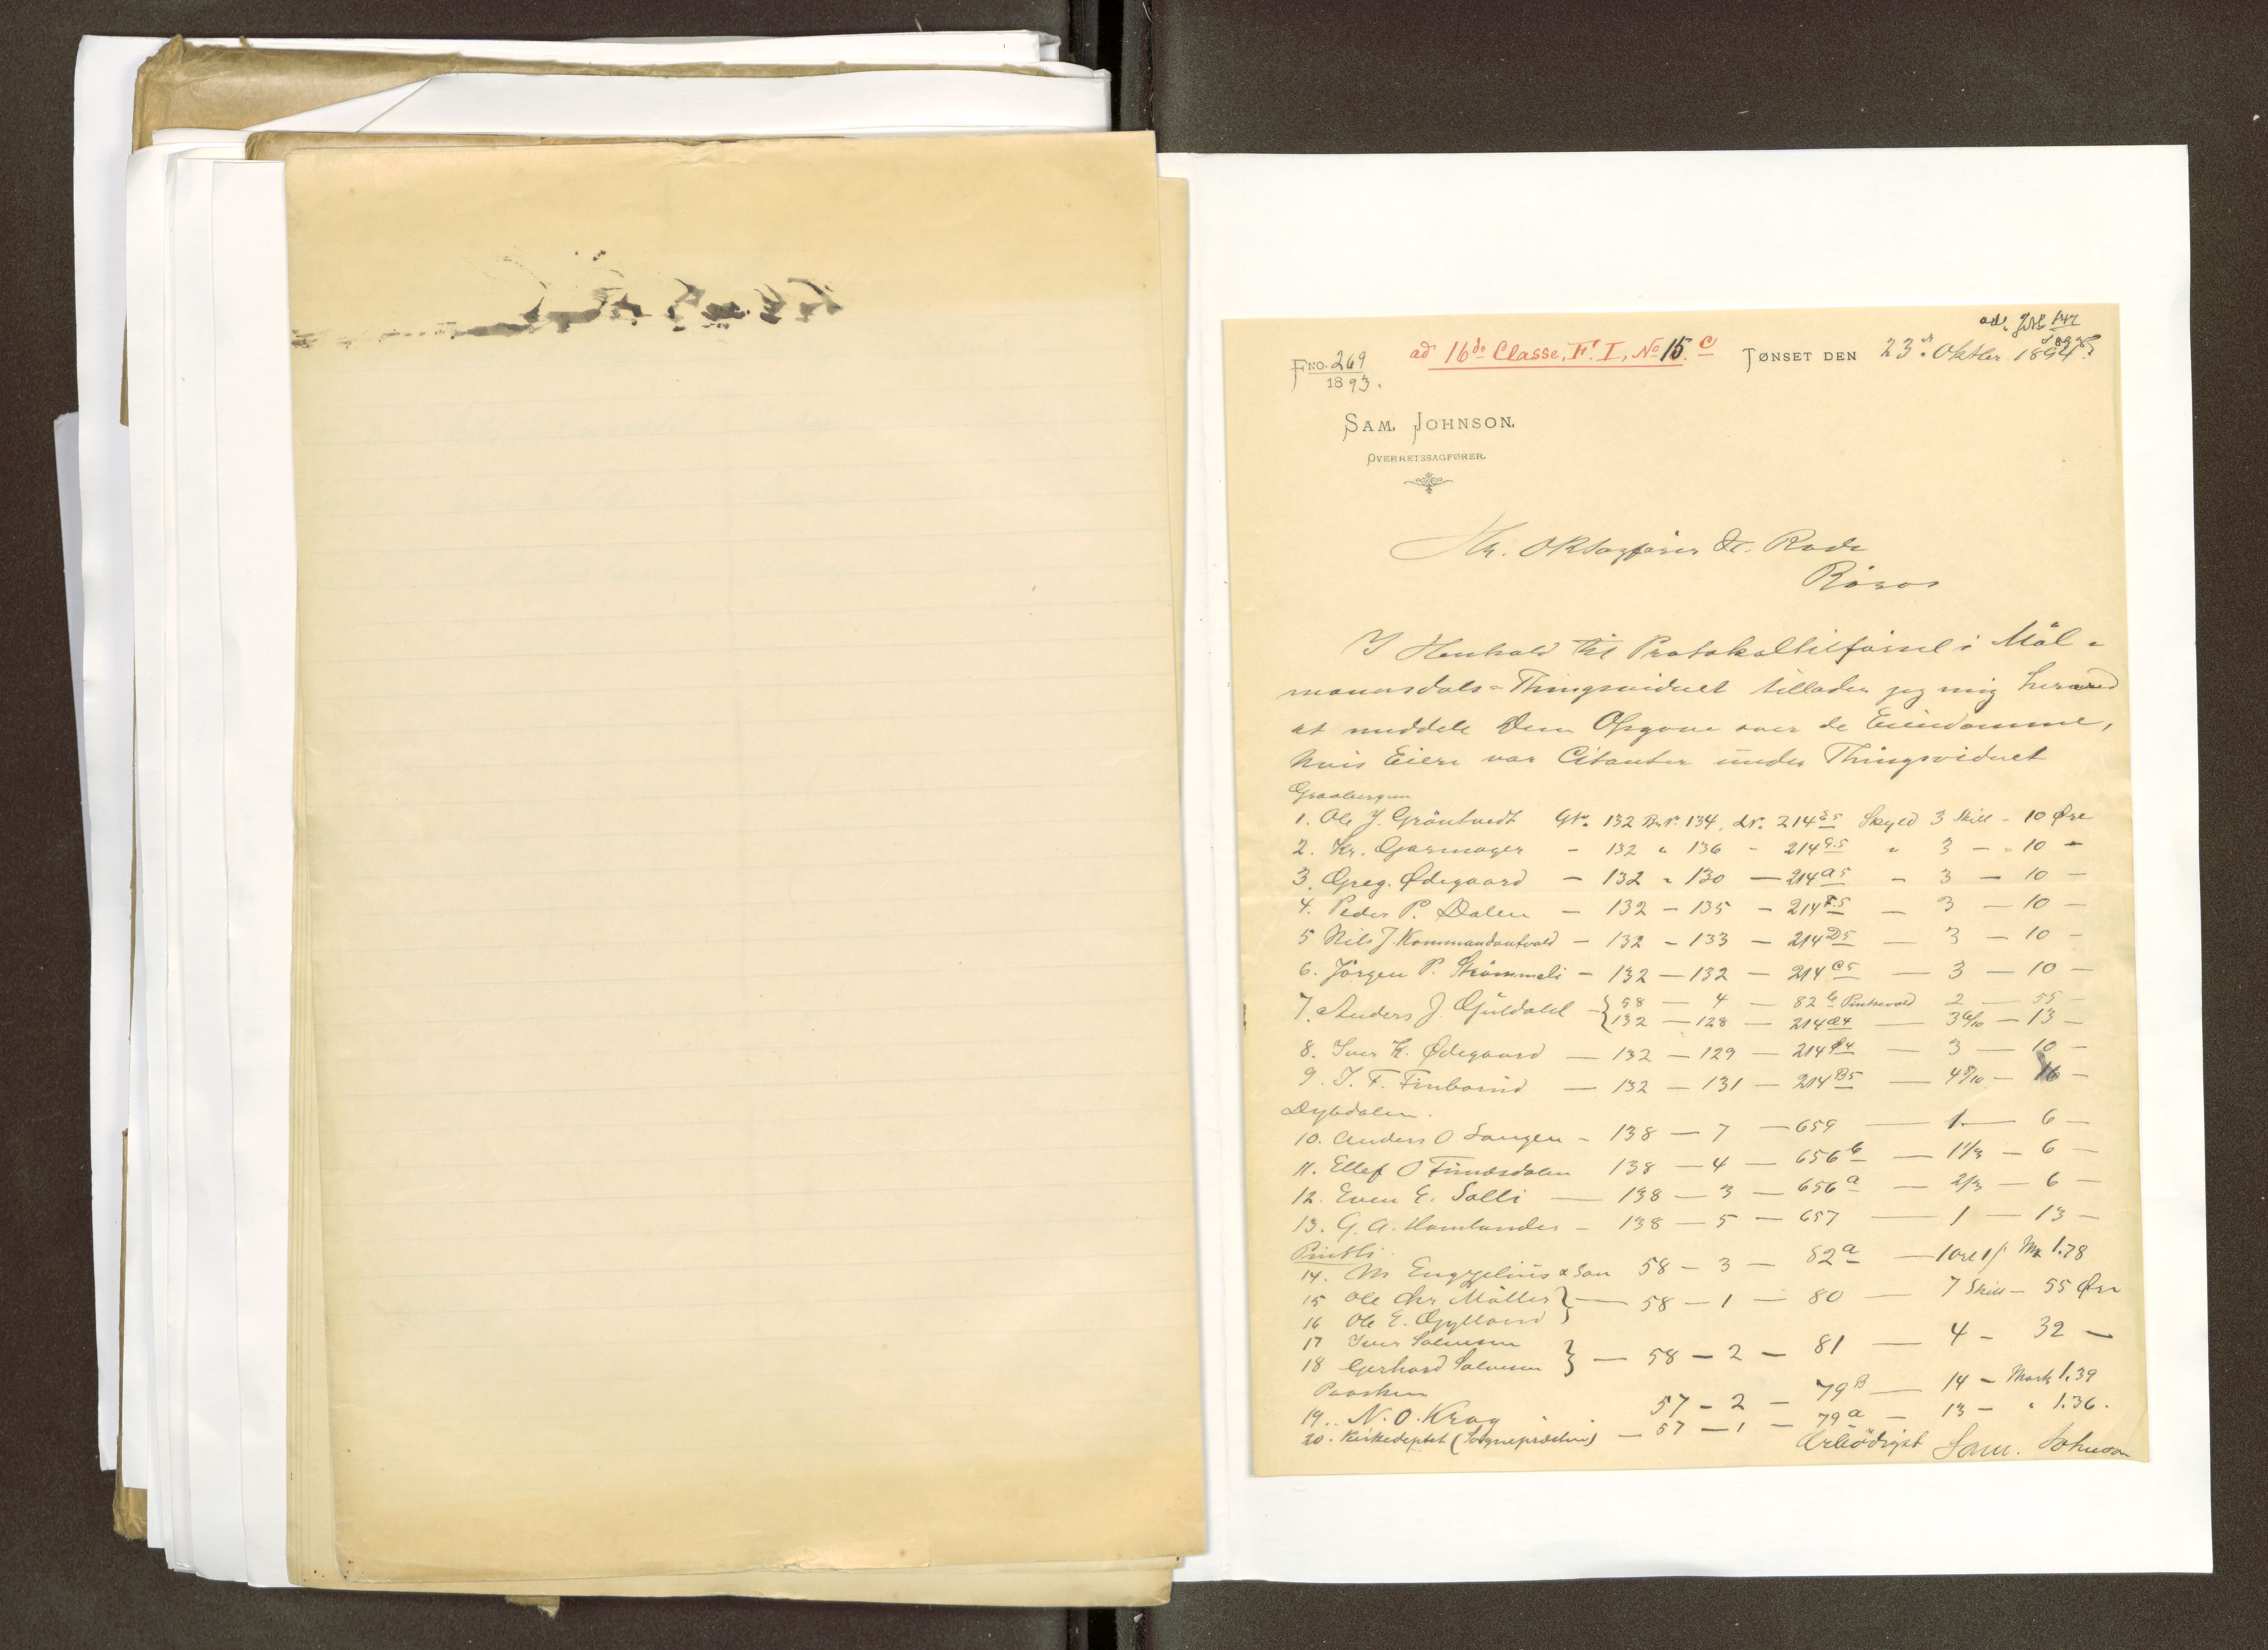 ad. JNo 147
1895
FNO. 269
1893.
ad 16de Classe, F. I, No 15. c
TØNSET DEN 23de Oktber 1894
SAM. JOHNSON.
OVERRETSSAGFØRER.
Hr. ORSagfører Rode
Røros
I Henhold til Protokoltilførsel i Mål-
mannsdals-Thingsvidnet tillader jeg mig herved
at meddele Dem Opgave over de Eiendomme,
hvis Eiere var Citanter under Thingsvidnet
Graabergen
1. Ole J. Gröntvedt GNo. 132 BrNo. 134, LNo. 214 E5 Skyld 3 Skill - 10 Øre
2. Kr. Garmager - 132 " 136 - 214 G.5 " 3 - 10 -
3. Greg. Ødegaard - 132 " 130 - 214 a5 - 3 - 10 -
4. Peder P. Dalen - 132 - 135 - 214 F.5 - 3 - 10 -
5 Nils J. Kommandantvold - 132 - 133 - 214 D5 - 3 - 10 -
6. Jörgen P. Strömmeli - 132 - 132 - 214 C5 - 3 - 10 -
7. Anders J. Guldahl - { 58 - 4 - 82 b 2 - 55 -
132 - 128 - 214 - 3 6/10 - 13 -
8. Iver K. Ødegaard - 132 - 129 - 214 - 3 - 10 -
9. J. F. Finborud - 132 - 131 - 214 B5 - 4 8/10 - 16 -
Dybdalen.
10. Anders O. Sangen - 138 - 7 - 659 - 1 - 6 -
11. Ellef O Finnesdalen 138 - 4 - 656 b - 1 1/3 - 6 -
12. Even E. Solli - 138 - 3 - 656 a - 2/3 - 6 -
13. G. A. Hamlander - 138 - 5 - 657 - 1 - 13 -
Pintli.
14. M Engzelius & Søn 58 - 3 - 82 a - 1 ort 1 /: Mk 1.78
15 Ole Chr Möller } - 58 - 1 - 80 - 7 Skill - 55 Øre
16 Ole E. Gylland
17 Iver Salvesen
18 Gerhard Salvesen } - 58 - 2 - 81 - 4 - 32 -
Paasken
19. N. O. Krag 57 - 2 - 79 B - 14 - Mark 1.39
20. Kirkedeptet (Sognepræsten) - 57 - 1 - 79 a - 13 - " 1.36.
Ærbödigst Sam. Johnson